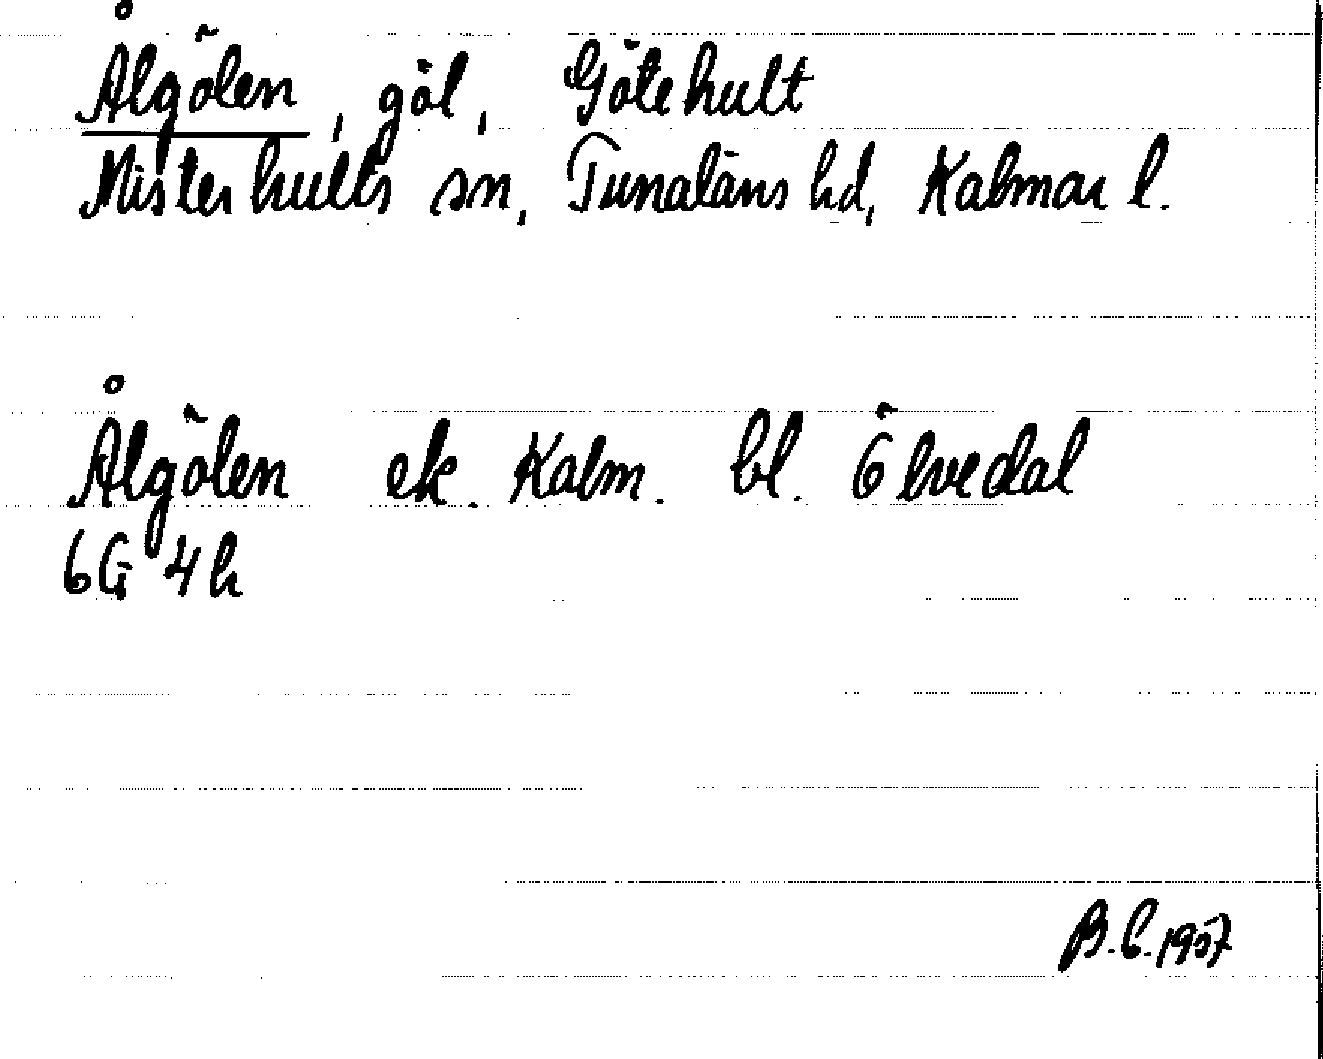 Ålgölen, göl, Götehult
Misterhults sn, Tunaläns hd, Kalmar l.
Ålgölen ek. Kalm. bl. Ölvedal
6G 4h
B.C. 1957